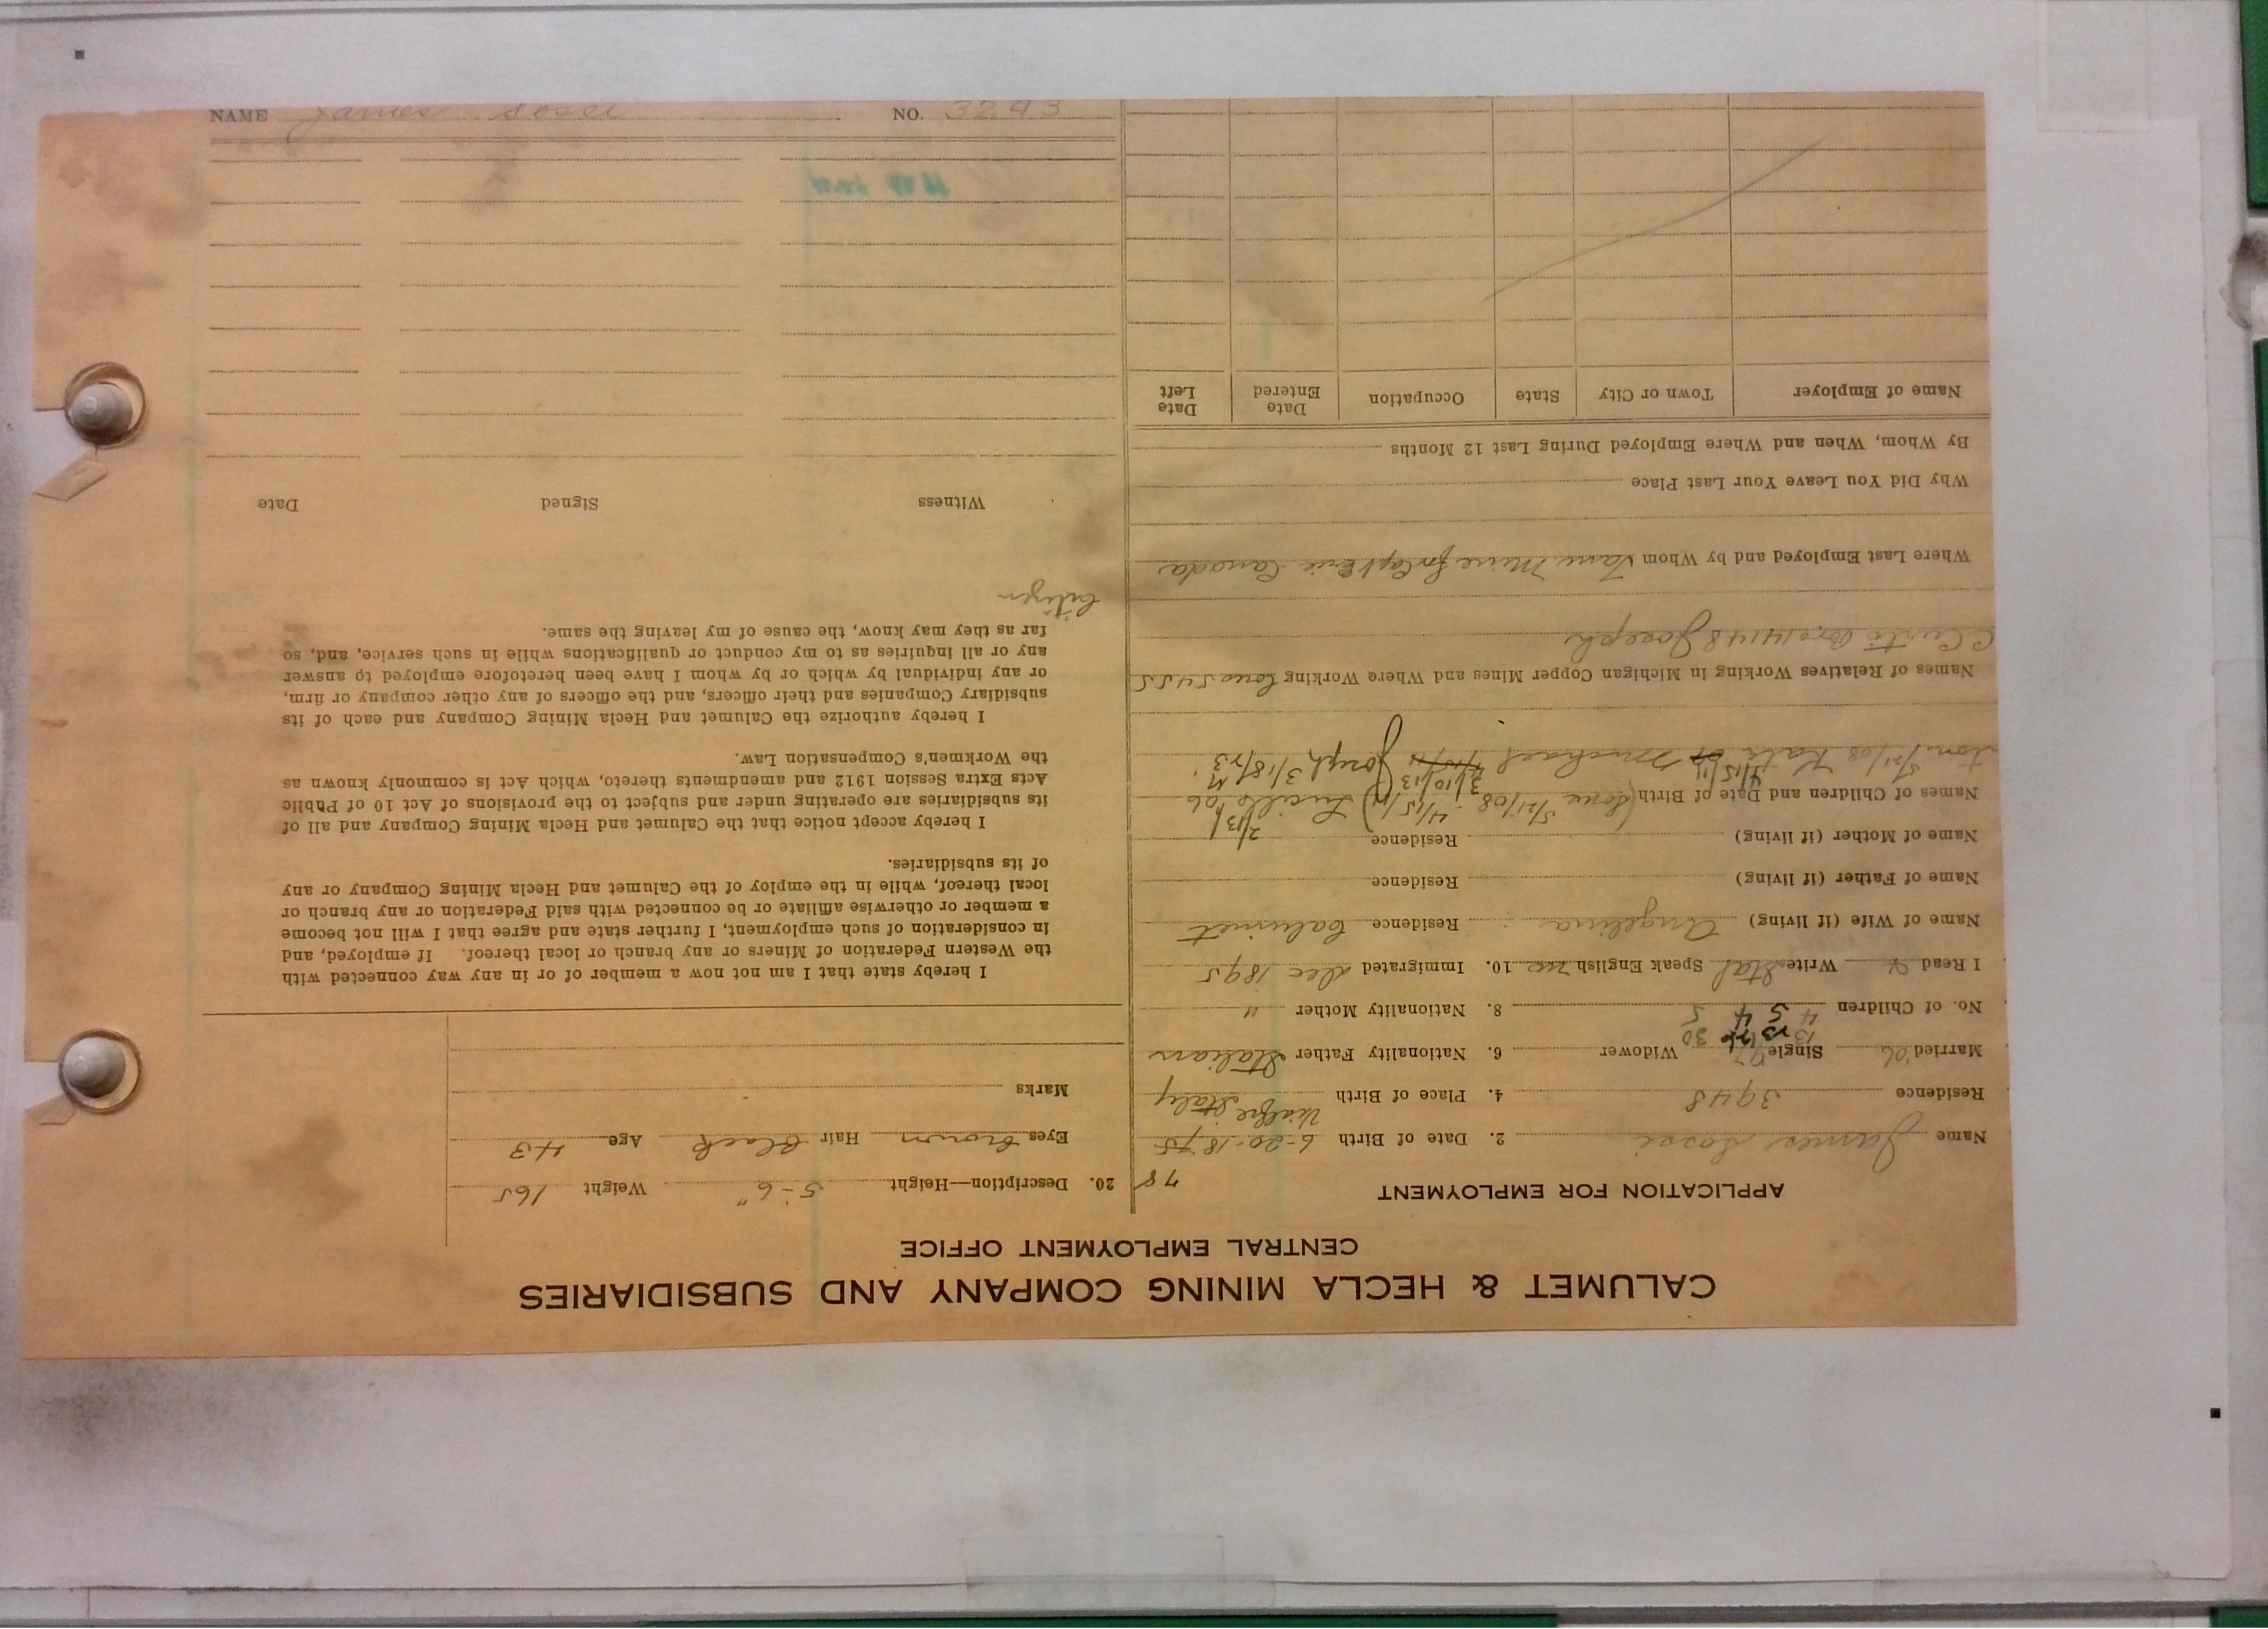 CALUMET & HECLA MINING COMPANY AND SUBSIDIARIES
CENTRAL EMPLOYMENT OFFICE
APPLICATION FOR EMPLOYMENT
78
Name James Sossi 2. Date of Birth 6-20-1875
Residence 3948 4. Place of Birth Italy
Married Single Widower 6. Nationality Father Italian
13 23 30
No. of Children 4 5 4 5 8. Nationality Mother "
I Read Write Ital Speak English yes 10. Immigrated Dec 1895
Name of Wife (if living) Angelina Residence Calumet
Name of Father (if living) Residence
Name of Mother (if living) Residence 2/13/
Names of Children and Date of Birth (Sone 5/21/08 - 4/15/11) Lucille 06
5/21/08 Kate 4/15/11 Michael 3/10/13 Joseph 3/18/23
Names of Relatives Working in Michigan Copper Mines and Where Working 5455
14148 Joseph
Where Last Employed and by Whom Canada
Why Did You Leave Your Last Place
By Whom, When and Where Employed During Last 12 Months
Name of Employer Town or City State Occupation Date Entered Date Left
20. Description—Height 5-6" Weight 165
Eyes Brown Hair Black Age 43
Marks
I hereby state that I am not now a member of or in any way connected with
the Western Federation of Miners or any branch or local thereof. If employed, and
in consideration of such employment, I further state and agree that I will not become
a member or otherwise affiliate or be connected with said Federation or any branch or
local thereof, while in the employ of the Calumet and Hecla Mining Company or any
of its subsidiaries.
I hereby accept notice that the Calumet and Hecla Mining Company and all of
its subsidiaries are operating under and subject to the provisions of Act 10 of Public
Acts Extra Session 1912 and amendments thereto, which Act is commonly known as
the Workmen's Compensation Law.
I hereby authorize the Calumet and Hecla Mining Company and each of its
subsidiary Companies and their officers, and the officers of any other company or firm,
or any individual by which or by whom I have been heretofore employed to answer
any or all inquiries as to my conduct or qualifications while in such service, and, so
far as they may know, the cause of my leaving the same.
Citizen
Witness Signed Date
NAME James Sossi NO. 3243